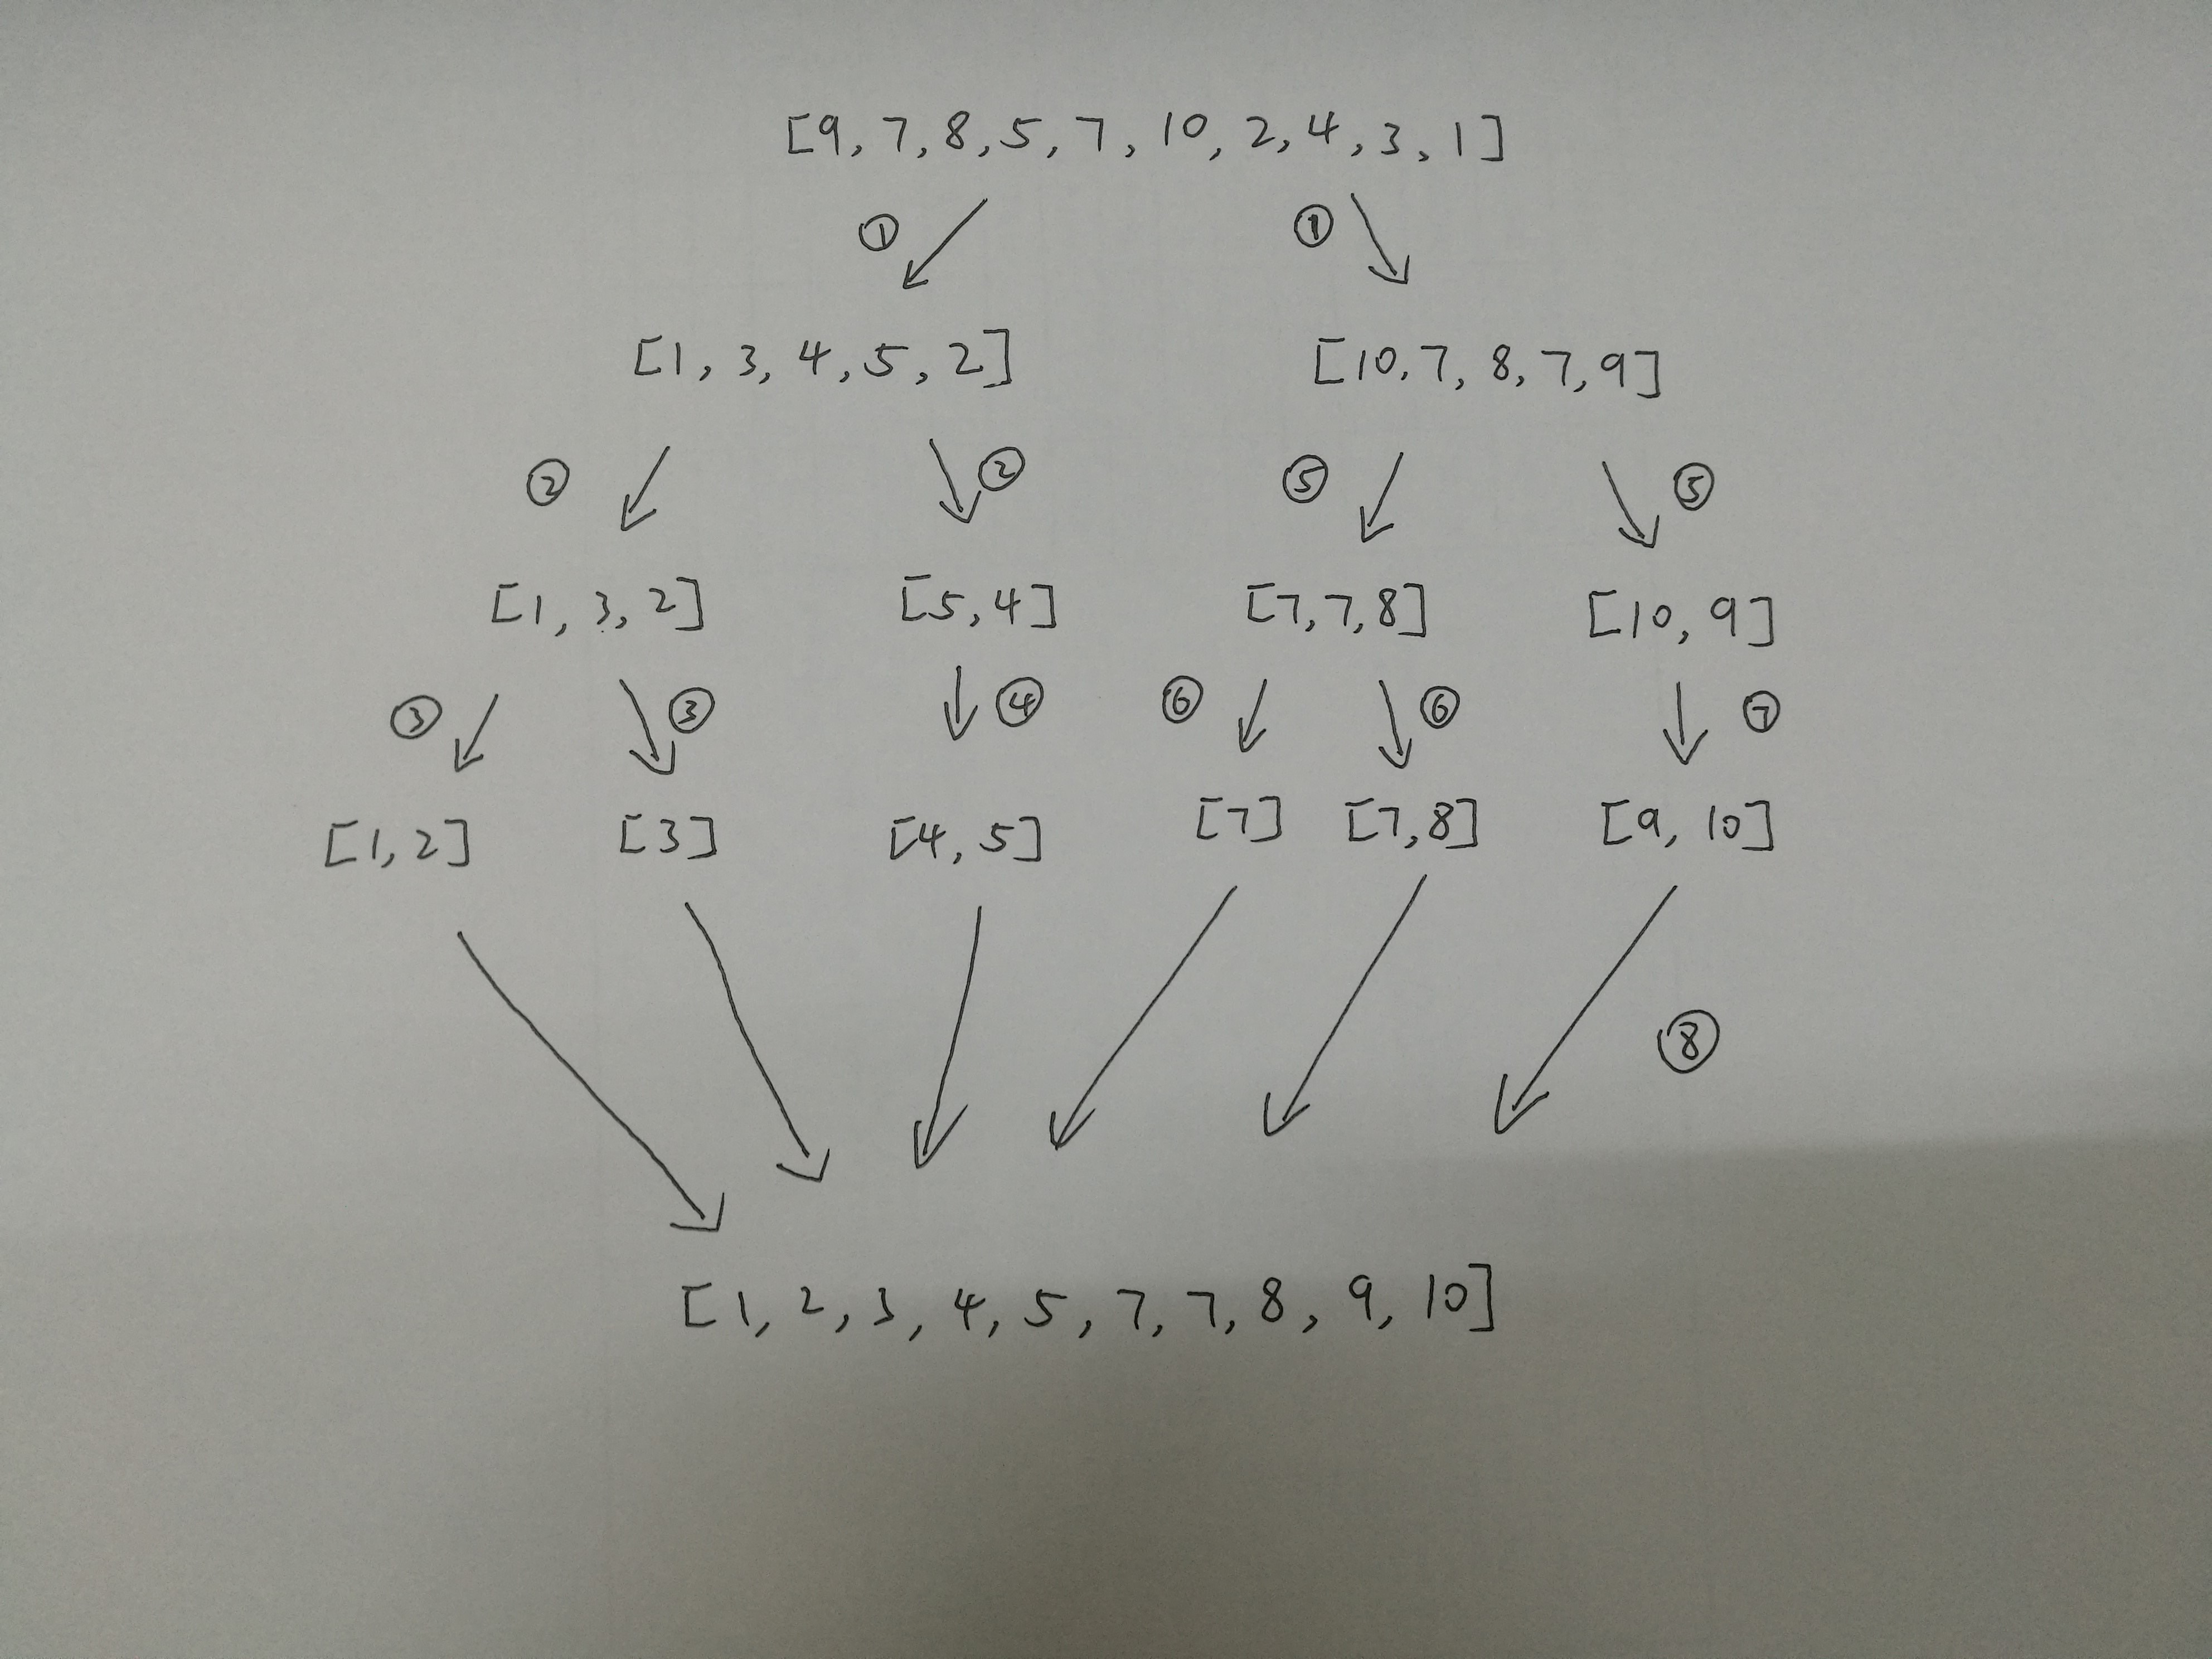 [9, 7, 8, 5, 7, 10, 2, 4, 3, 1]
① ①
[1, 3, 4, 5, 2] [10, 7, 8, 7, 9]
② ② ⑤ ⑤
[1, 3, 2] [5, 4] [7, 7, 8] [10, 9]
③ ③ ④ ⑥ ⑥ ⑦
[1, 2] [3] [4, 5] [7] [7, 8] [9, 10]
⑧
[1, 2, 3, 4, 5, 7, 7, 8, 9, 10]